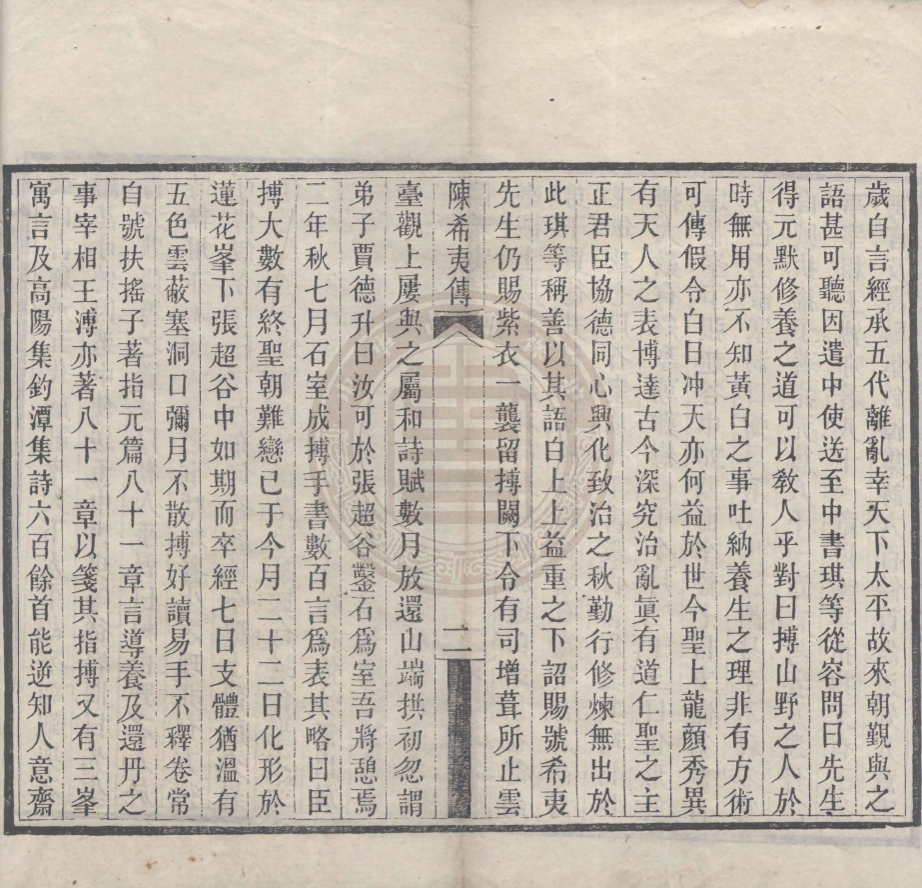 歲自言經承五代離亂幸天下太平故來朝覲與之
語甚可聽因遣中使送至中書琪等從容問曰先生
得元默修養之道可以敎人乎對曰摶山野之人於
時無用亦不知黃白之事吐納養生之理非有方術
可傳假令白日冲天亦何益於世今聖上龍顏秀異
有天人之表博達古今深究治亂眞有道仁聖之主
正君臣協德同心興化致治之秋勤行修煉無出於
此琪等稱善以其語白上上益重之下詔賜號希夷
先生仍賜紫衣一襲留摶闕下令有司增葺所止雲
陳希夷傳 二
臺觀上屢與之屬和詩賦數月放還山端拱初忽謂
弟子賈德升曰汝可於張超谷鑿石爲室吾將憩焉
二年秋七月石室成摶手書數百言爲表其略曰臣
摶大數有終聖朝難戀已于今月二十二日化形於
蓮花峯下張超谷中如期而卒經七日支體猶溫有
五色雲蔽塞洞口彌月不散摶好讀易手不釋卷常
自號扶搖子著指元篇八十一章言導養及還丹之
事宰相王溥亦著八十一章以箋其指摶又有三峯
寓言及高陽集釣潭集詩六百餘首能逆知人意齋